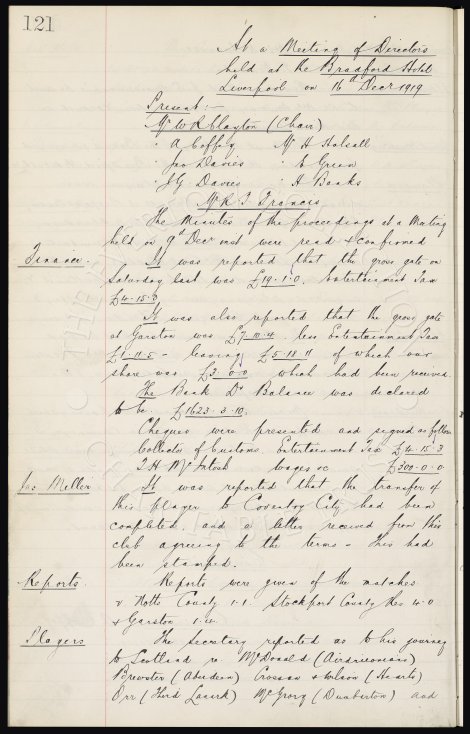 121
At a Meeting of Directors
held at the Bradford Hotel
Liverpool on 16th Decr 1919
Present:-
Mr W R Clayton (Chair)
" A Coffey Mr H Halsall
Jas Davies " E Green
J G Davies " H Banks
Mr R T Francis
The Minutes of the proceedings at a Meeting
held on 9th Dec inst were read & confirmed
Finance. It was reported that the gross gate on
Saturday last was £19.1.0. Entertainment Tax
£4.15.3
It was also reported that the gross gate
at Garston was £7.10.4 less Entertainment Tax
£1.11.5 - leaving £5.18.11 of which our
share was £3.0.0 which had been received.
The Bank Dr Balance was declared
to be £1623.3.10.
Cheques were presented and signed as follows
Collector of Customs. Entertainment Tax £4.15.3
T.H. McIntosh wages &c £300.0.0
Jas Miller It was reported that the transfer of
this player to Coventry City had been
completed, and a letter received from this
club agreeing to the terms - this had
been stamped.
Reports Reports were given of the matches
v Notts County 1-1. Stockport County Res 4-0
& Garston 1-4.
Players The Secretary reported as to his journey
to Scotland re McDonald (Airdrieonians)
Brewster (Aberdeen) Crossan & Wilson (Hearts)
Orr (Third Lanark) McGrory (Dumbarton) and